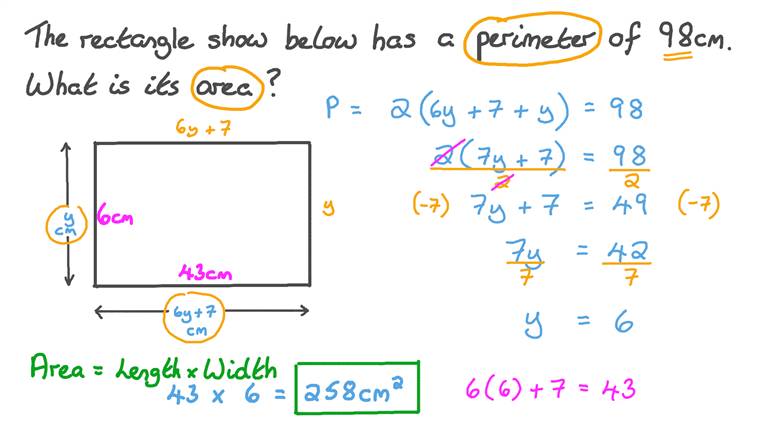 The rectangle show below has a perimeter of 98cm.
What is its area?
P = 2(6y + 7 + y) = 98
6y + 7
2(7y + 7) = 98
2 2
(-7) 7y + 7 = 49 (-7)
y
cm
6cm
y
7y = 42
7 7
43cm
6y+7
cm
y = 6
Area = Length × Width
43 × 6 = 258cm²
6(6) + 7 = 43